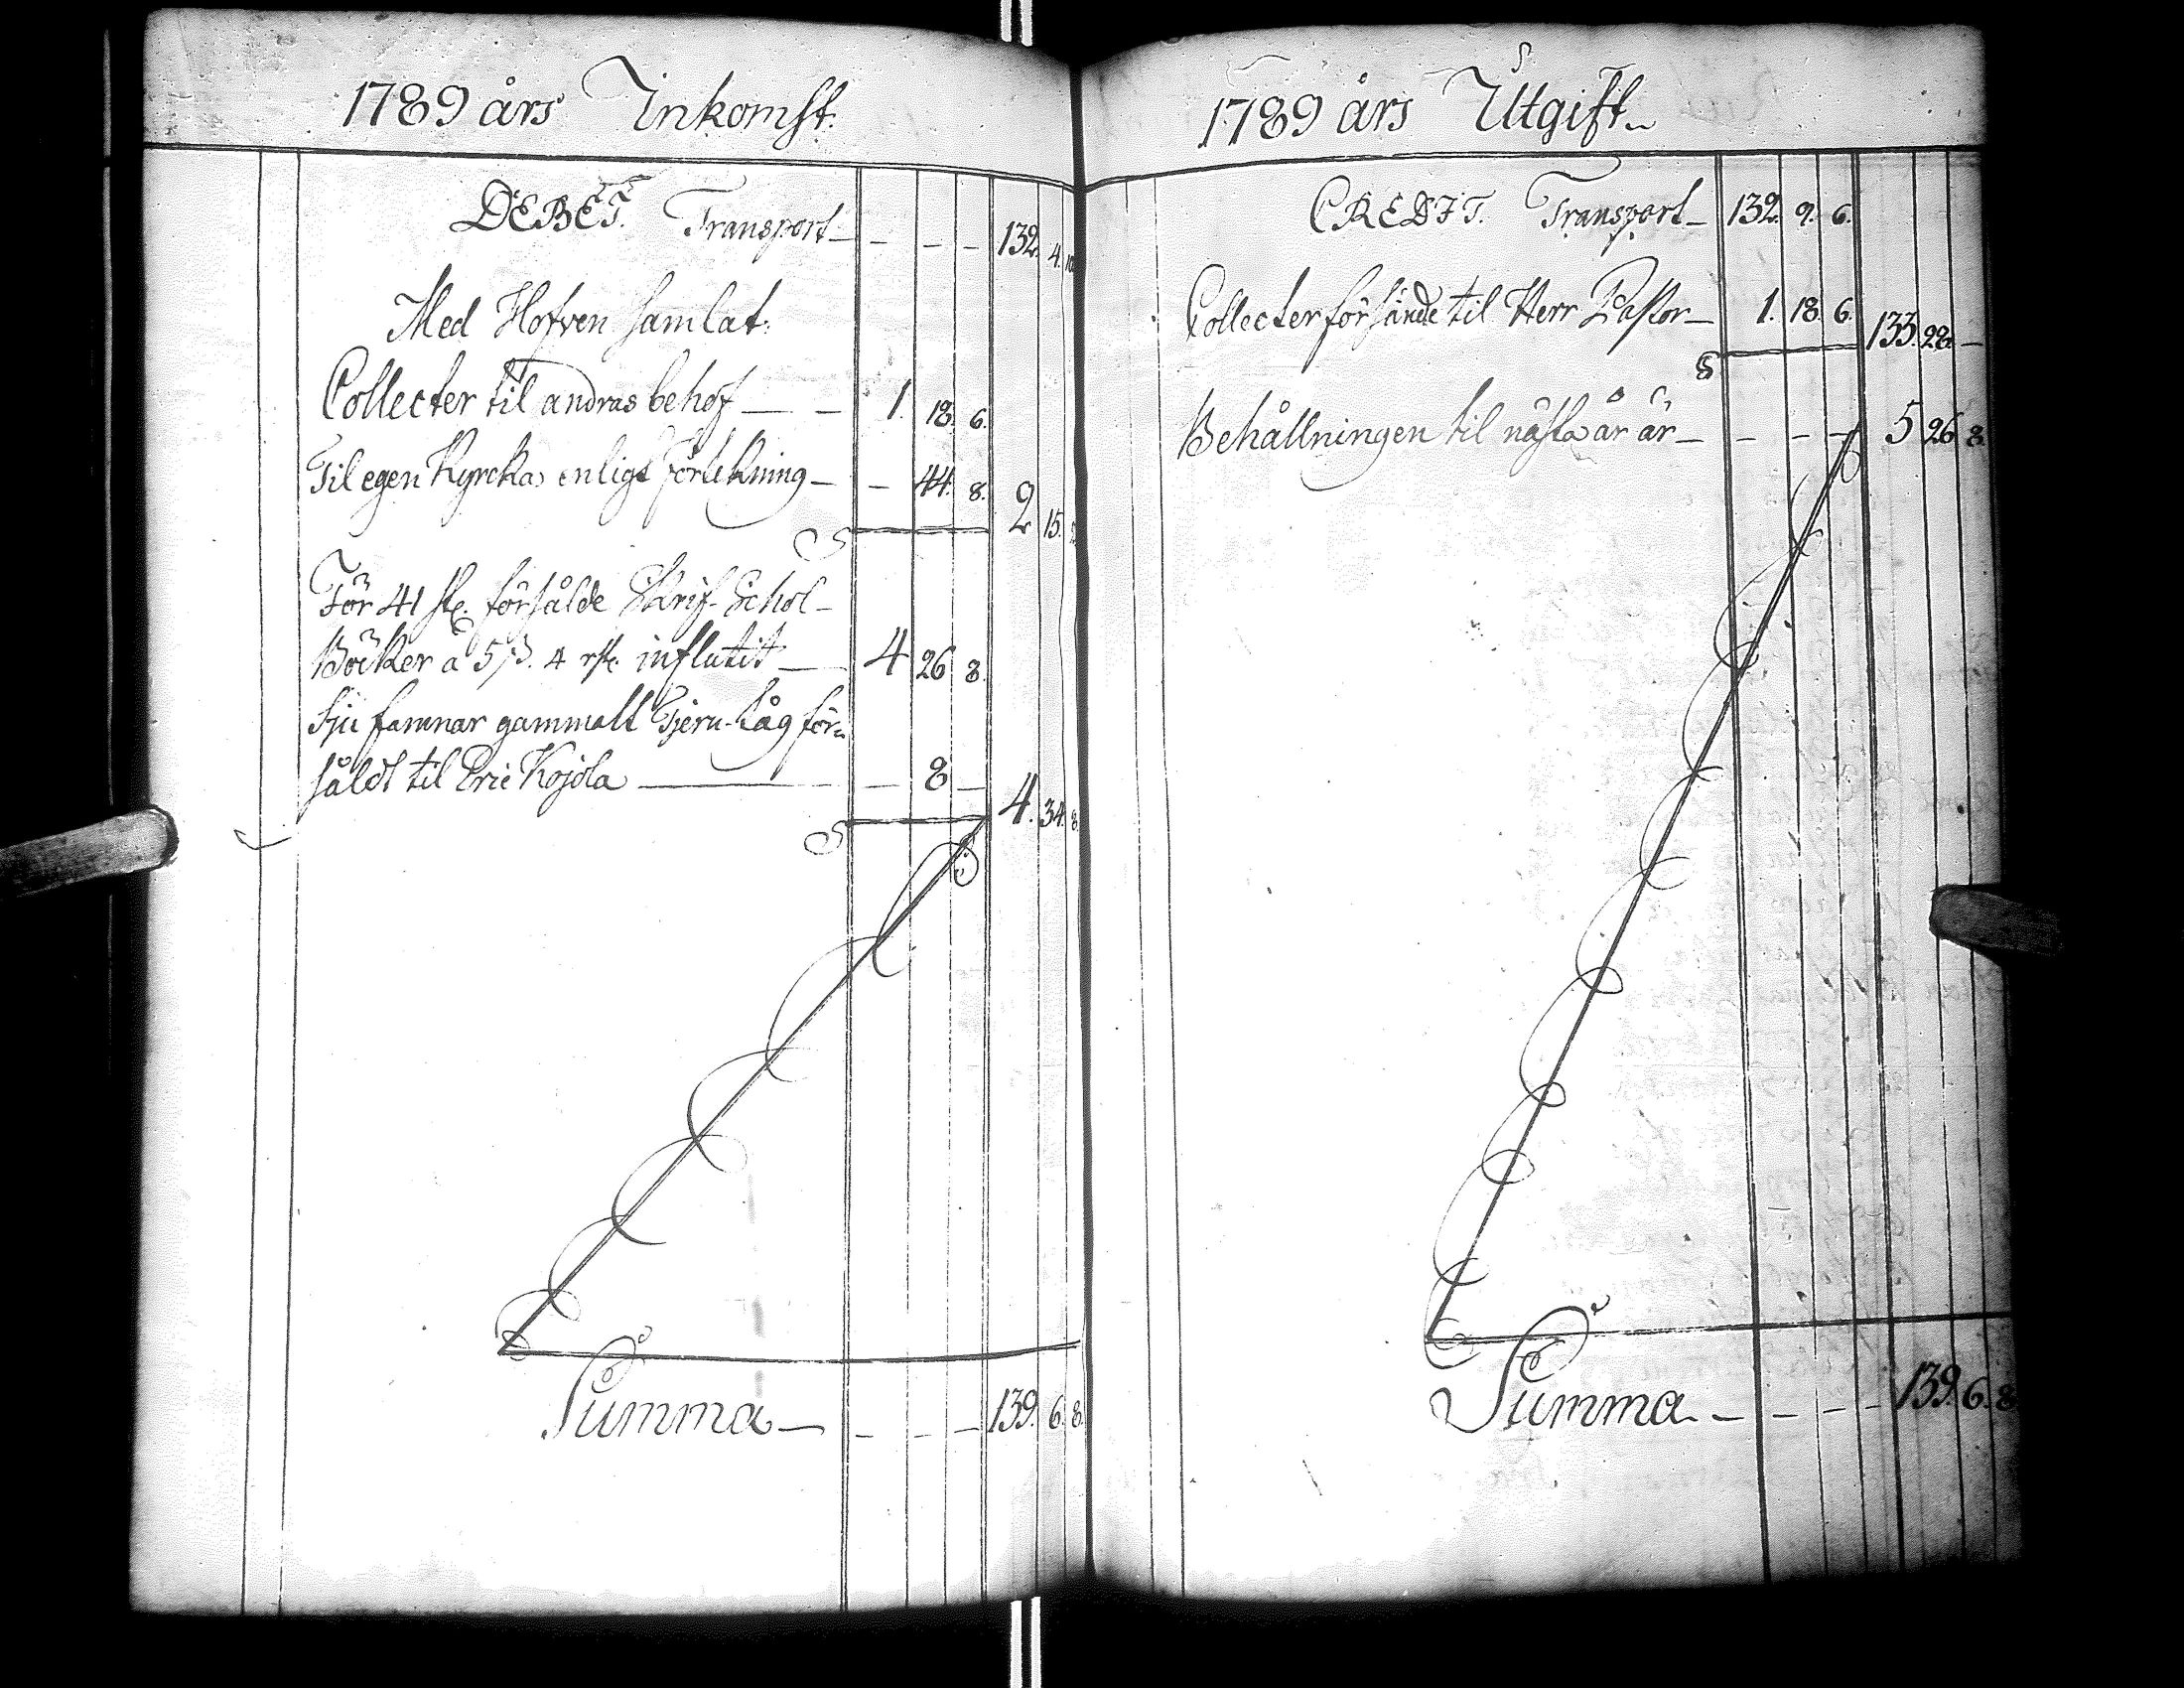 1789 års Inkomst.
DEBET. Transport — — — — 132. 4. 10
Med Hofven samlat:
Collecter til andras behof — — 1. 18. 6.
Til egen Kyrcka enligt förtekning — — 44. 8. 2 15. 2
För 41 st. försålde Skrif-Schol-
Böcker a 5 β. 4 rst. influtit — 4 26 8.
Sju famnar gammalt Tjeru-tåg för-
såldt til Eric Kojola — — 8 — 4. 34. 8.
Summa — — — — 139. 6. 8.
1789 års Utgift
CREDIT. Transport — 132. 9. 6.
Collecter försände til Herr Pastor — 1. 18. 6. 133. 28. —
Behållningen til nästa år är — — — — 5 26 8.
Summa — — — — 139. 6. 8